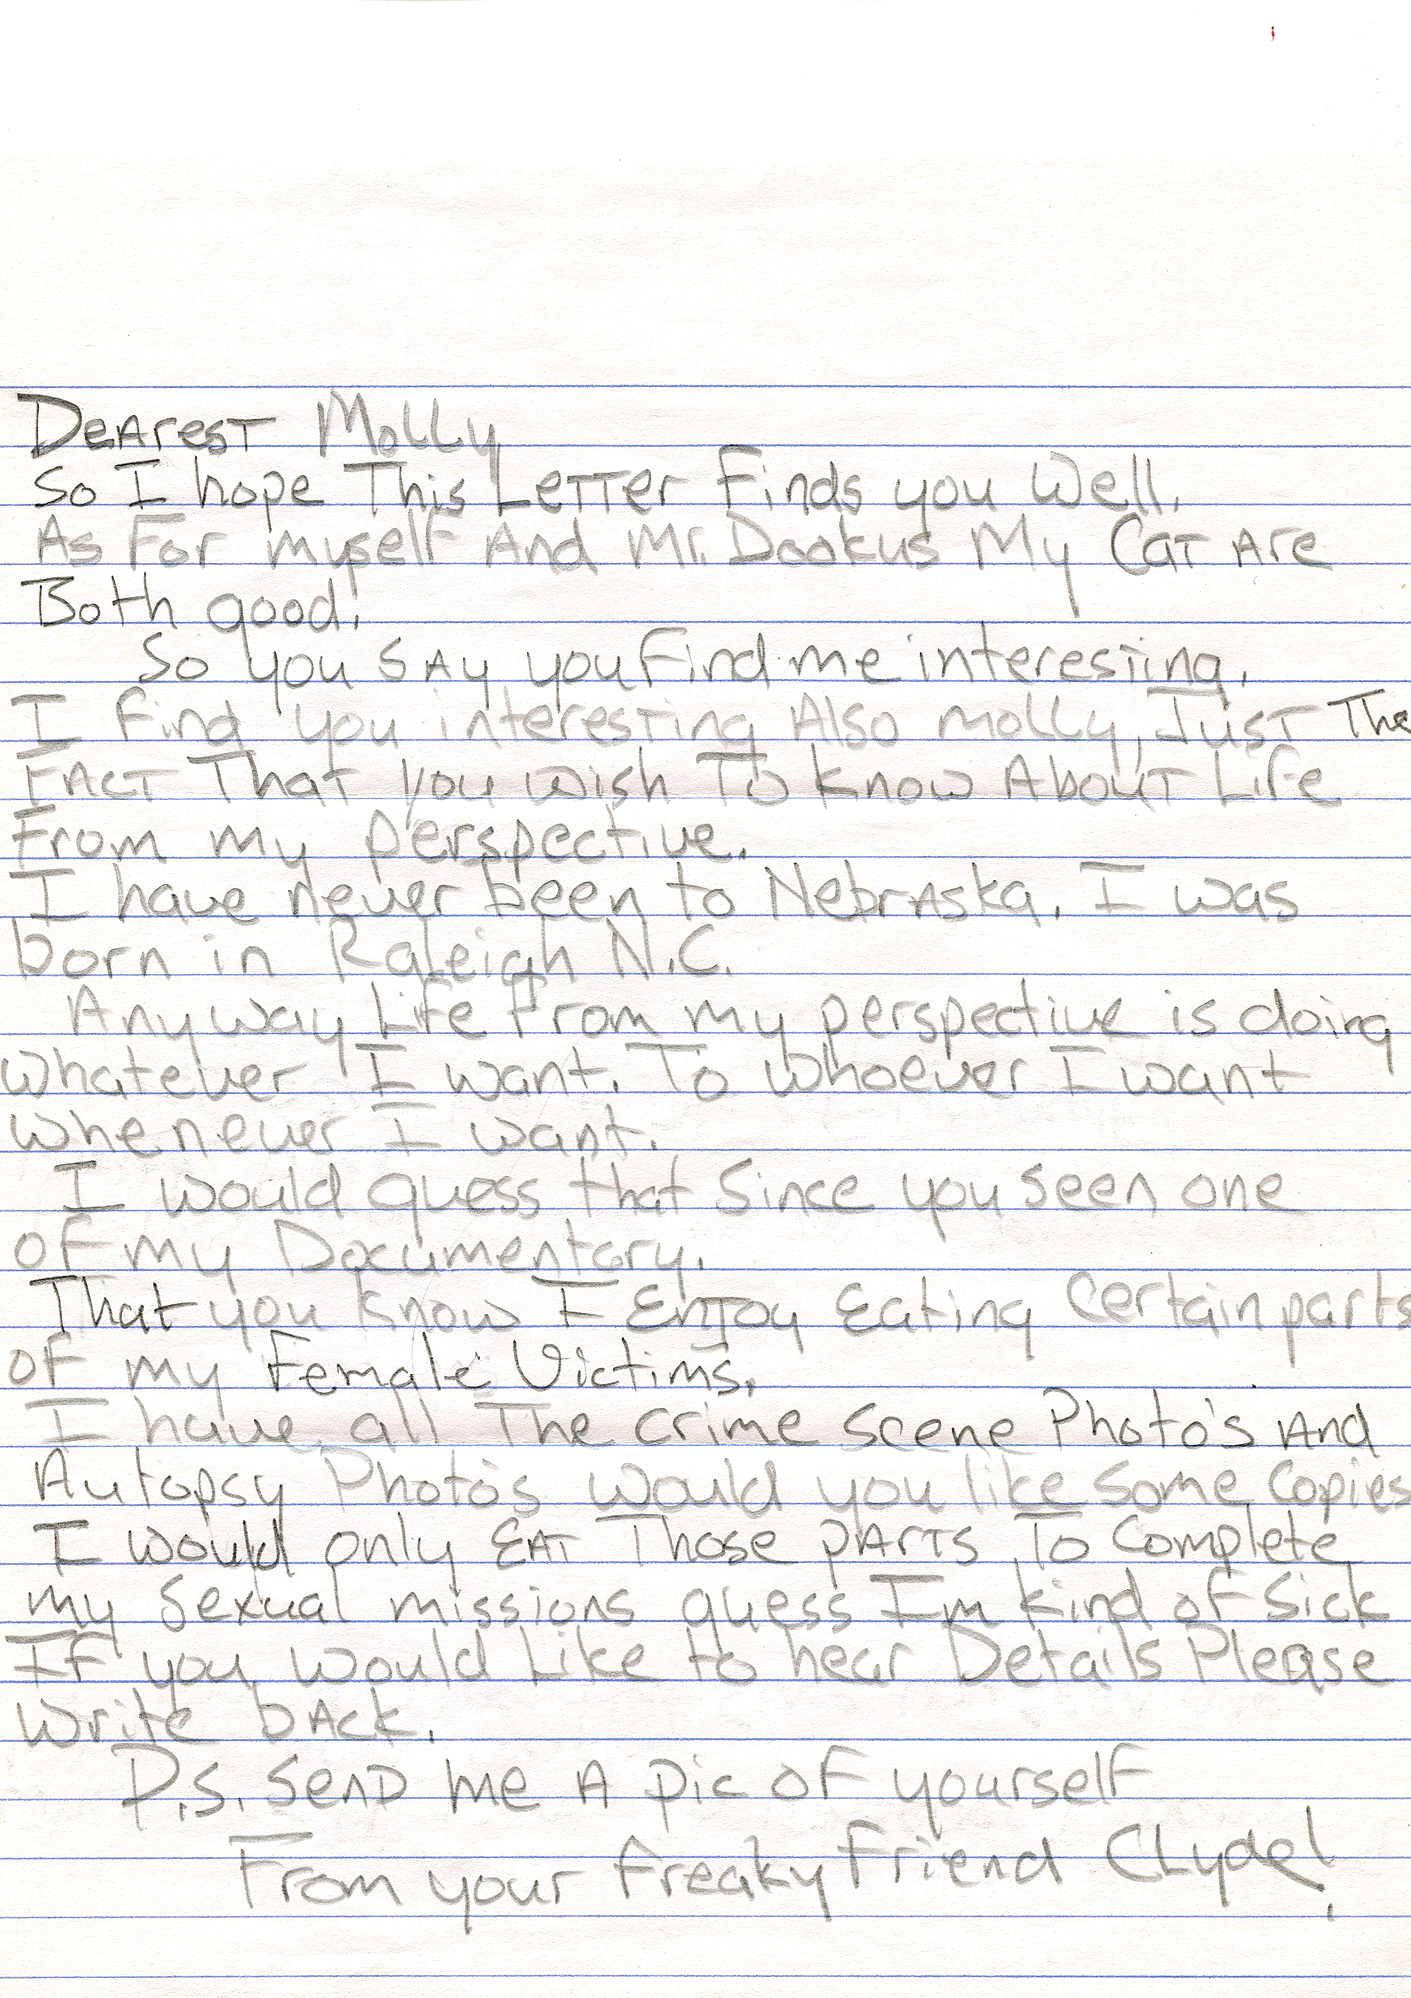 Dearest Molly
So I hope This Letter Finds you Well.
As For myself And Mr. Dookus My Cat Are
Both good!
So you say you find me interesting.
I find you interesting Also Molly, Just The
FACT That you wish To know About Life
From my perspective.
I have never been to Nebraska. I was
born in Raleigh N.C.
Any way Life from my perspective is doing
whatever I want. To whoever I want
whenever I want.
I would guess that Since you seen one
of my Documentory.
That you know I EnJoy Eating Certain parts
of my Female Victims.
I have all The crime scene Photo's And
Autopsy Photo's would you like Some Copies
I would only EAT Those pARTs To Complete
my Sexual missions guess Im kind of Sick
If you would Like to hear Details Please
write bAck.
P.S. SenD me A pic of yourself
From your freaky Friend CLyde!